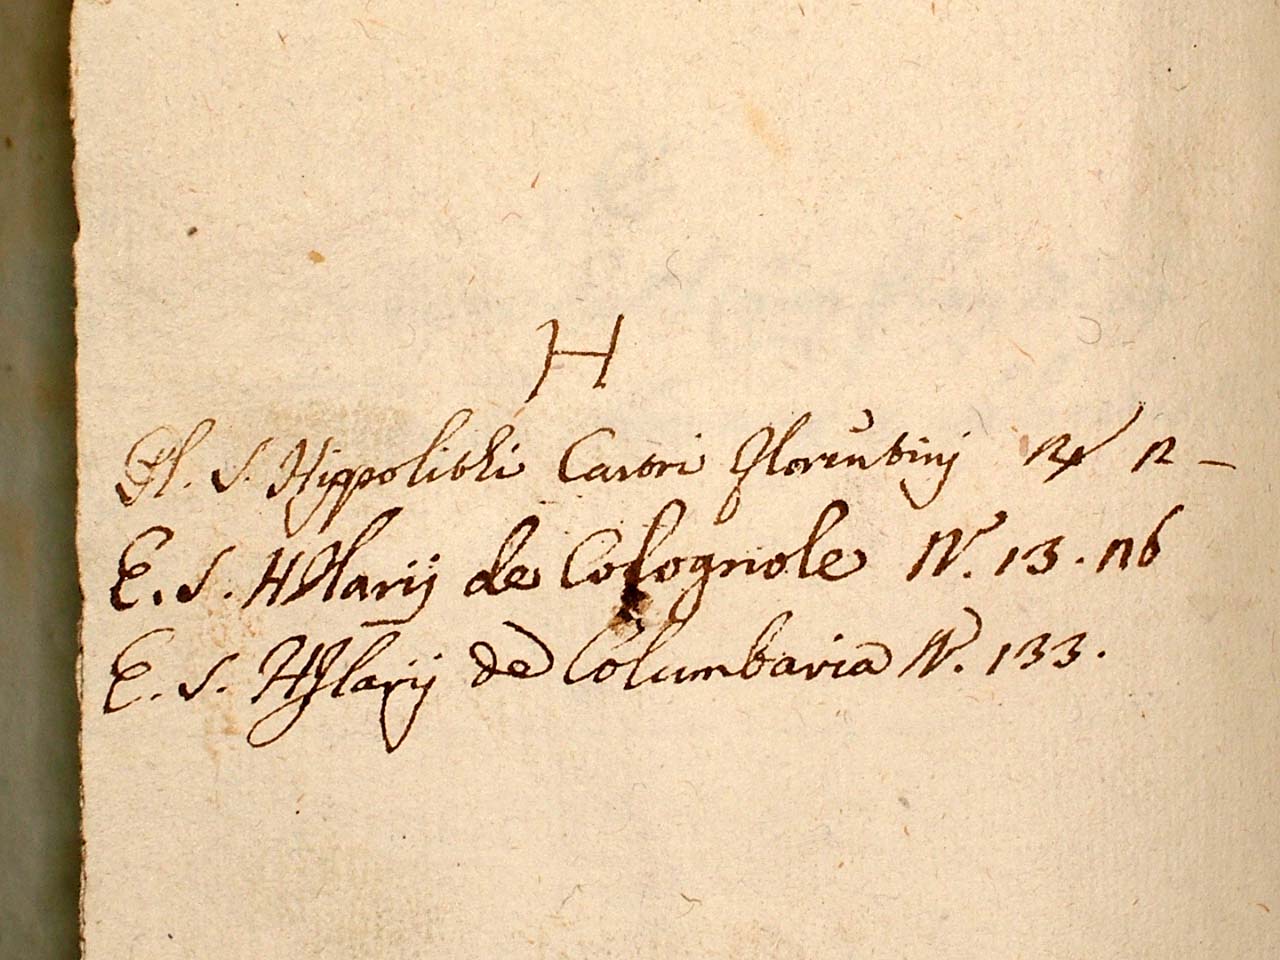 H
Pl. S. Hippolithi Castri Florentinj N. 12 -
E. S. HIlarij de Colognole N. 13. 126
E. S. HIlarij de Columbaria N. 133.